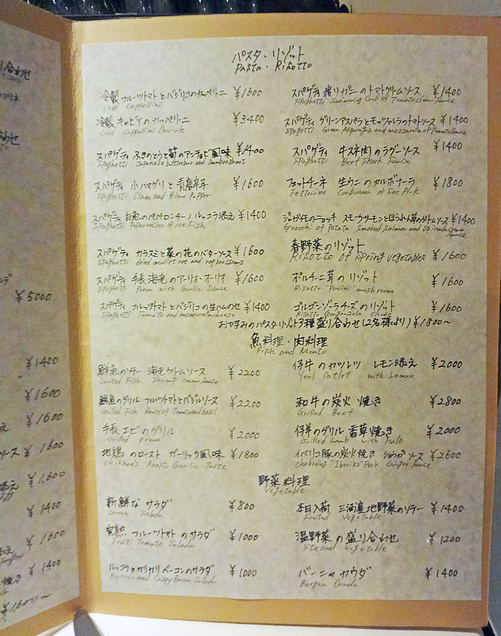 パスタ・リゾット
Pasta・Risotto
冷製 フルーツトマトとバジリコのカッペリーニ ¥1600
Cold Cappellini
冷製 キャビアのカッペリーニ ¥3400
Cold Cappellini Caviale
スパゲティ ふきのとうと筍のアンチョビ風味 ¥1400
スパゲティ 小ハマグリと青唐辛子 ¥1600
Spaghetti Clam and Blue Pepper
スパゲティ 白魚のペペロンチーノ ルッコラ添え ¥1400
Spaghetti Peperoncino of ice Fish
スパゲティ カラスミと菜の花のバターソース ¥1600
スパゲティ 手長海老のアーリオ・オーリオ ¥1600
Spaghetti Prawn with Garlic Sauce
スパゲティ フルーツトマトとバジリコの ¥1400
スパゲティ のトマトクリームソース ¥1400
スパゲティ グリーンアスパラとモッツァレラのトマトソース ¥1400
スパゲティ 牛スネ肉のラグーソース ¥1400
Spaghetti Beef Shank Sauce
フェットチーネ 生ウニのカルボナーラ ¥1800
じゃがイモのニョッキ スモークサーモンとほうれん草のクリームソース ¥1400
Gnocchi of Potato Smoked Salmon and Spinach Cream Sauce
春野菜のリゾット ¥1600
Risotto of Spring Vegetables
ポルチーニ茸のリゾット ¥1600
ゴルゴンゾーラチーズのリゾット ¥1600
お好みのパスタ・リゾット3種盛り合わせ(2名様より) ¥1800～
魚料理・肉料理
Fish and Meats
鮮魚のソテー 海老クリームソース ¥2200
Sauted Fish Shrimp cream Sauce
鮮魚のグリル フルーツトマトとバジルソース ¥2200
手長エビのグリル ¥2000
Grilled Prawn
地鶏のロースト ガーリック風味 ¥1800
仔牛のカツレツ レモン添え ¥2000
Veal Cutlet with Lemon
和牛の炭火焼き ¥2800
Grilled Beef
仔羊のグリル 香草焼き ¥2000
Grilled Lamb with
イベリコ豚の炭火焼 ソース ¥2600
Iberiko Pork Ginger Sauce
野菜料理
Vegetable
新鮮なサラダ ¥800
Green Salada
完熟 フルーツトマトのサラダ ¥1000
Fruit Tomato Salada
ルッコラとカリカリベーコンのサラダ ¥1000
Rucola and Crispy Bacon Salada
本日入荷 三浦産地野菜のソテー ¥1400
温野菜の盛り合わせ ¥1200
バーニャカウダ ¥1400
¥5000
¥1400
¥1600
¥1600
¥1600
¥1400
¥1400
¥1400
¥1600～